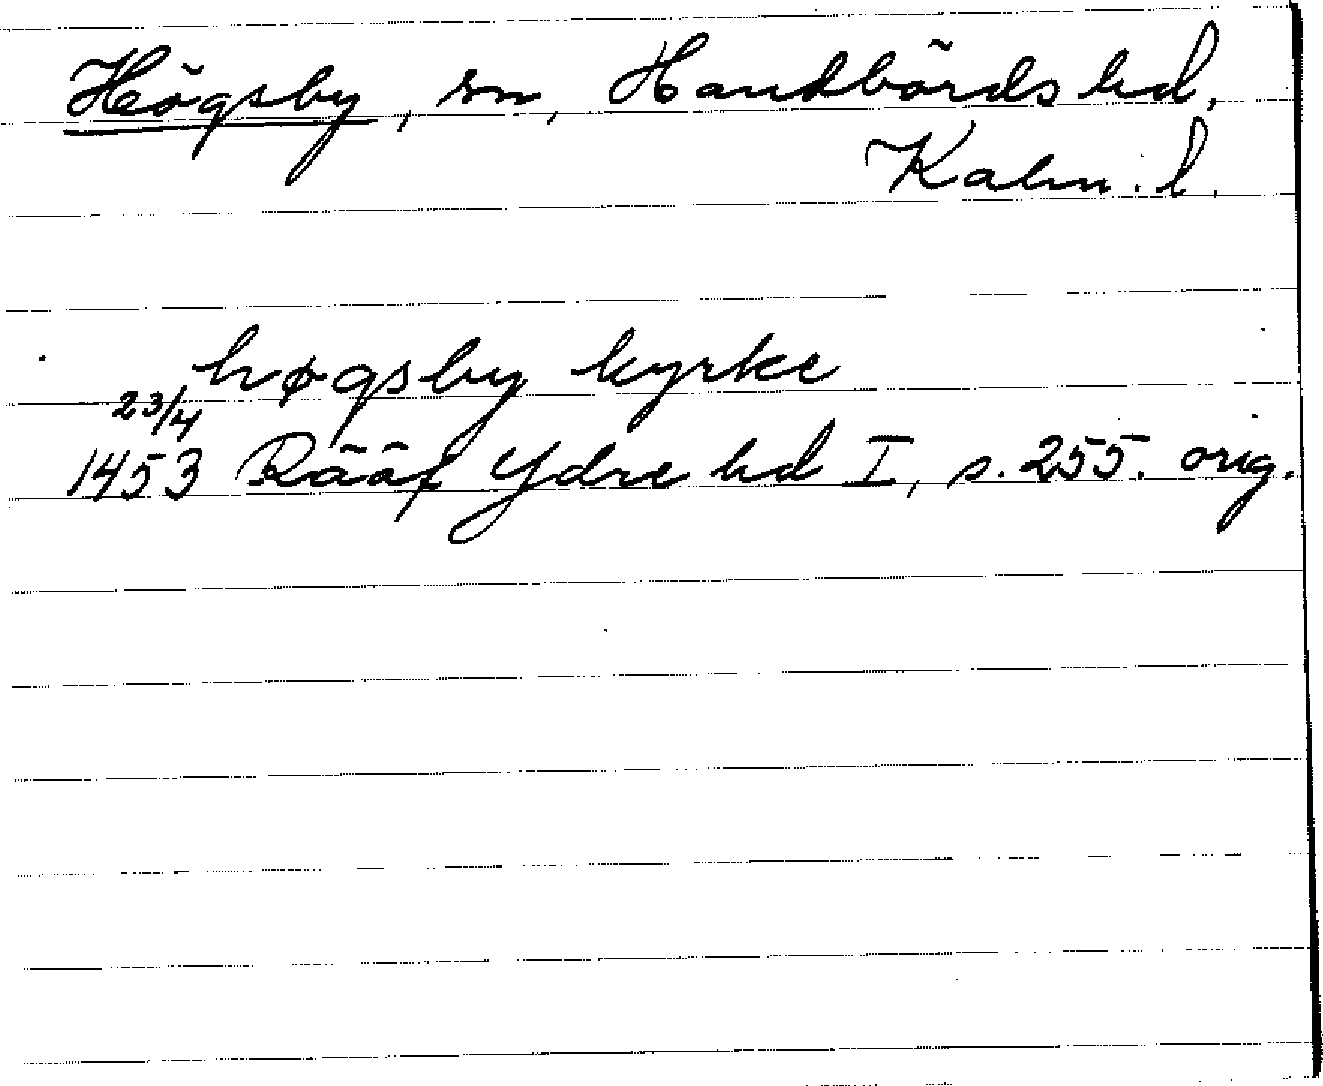 Högsby, sn, Handbörds hd,
Kalm. l.
høgsby kyrke
23/4
1453 Rääf Ydre hd I, s. 255. orig.